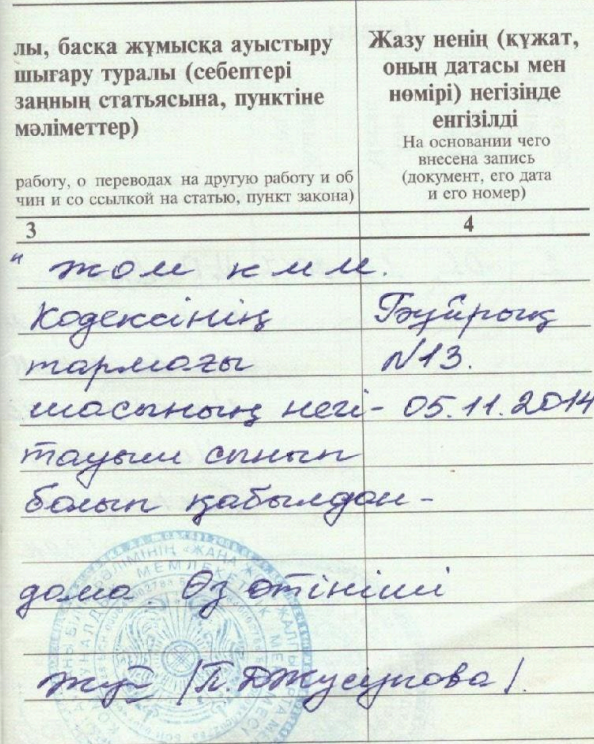 лы, басқа жұмысқа ауыстыру
шығару туралы (себептері
заңның статьясына, пунктіне
мәліметтер)
работу, о переводах на другую работу и об
чин и со ссылкой на статью, пункт закона)
Жазу ненің (құжат,
оның датасы мен
нөмірі) негізінде
енгізілді
На основании чего
внесена запись
(документ, его дата
и его номер)
3
4
" жом кмм.
Кодексінің
Бұйрық
тармағы
N13.
шасының негі-
05.11.2014
тауыш сынып
болып қабылдан-
дома. Өз өтініші
/П. Джусупова/.